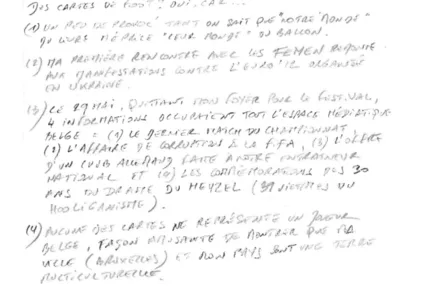 DES CARTES DE FOOT? OUI, CAR...
(1) UN PEU DE TANT ON SAIT QUE "NOTRE MONDE"
TOUJOURS MÉPRISE "LEUR MONDE" DU BALLON.
(2) MA PREMIÈRE RENCONTRE AVEC LES FEMEN REMONTE
AUX MANIFESTATIONS CONTRE L'EURO'12 ORGANISÉ
EN UKRAINE.
(3) CE 29 MAI, QUITTANT MON FOYER POUR LE FESTIVAL,
4 INFORMATIONS OCCUPAIENT TOUT L'ESPACE MÉDIATIQUE
BELGE = (1) LE DERNIER MATCH DU CHAMPIONNAT,
(2) L'AFFAIRE DE CORRUPTION À LA FIFA, (3) L'OFFRE
D'UN CLUB ALLEMAND FAITE À NOTRE ENTRAINEUR
NATIONAL ET (4) LES COMMÉMORATIONS DES 30
ANS DU DRAME DU HEYZEL (39 VICTIMES DU
HOOLIGANISME).
(4) AUCUNE DES CARTES NE REPRÉSENTE UN JOUEUR
BELGE, FAÇON AMUSANTE DE MONTRER QUE MA
VILLE (BRUXELLES) ET MON PAYS SONT UNE TERRE
MULTICULTURELLE.